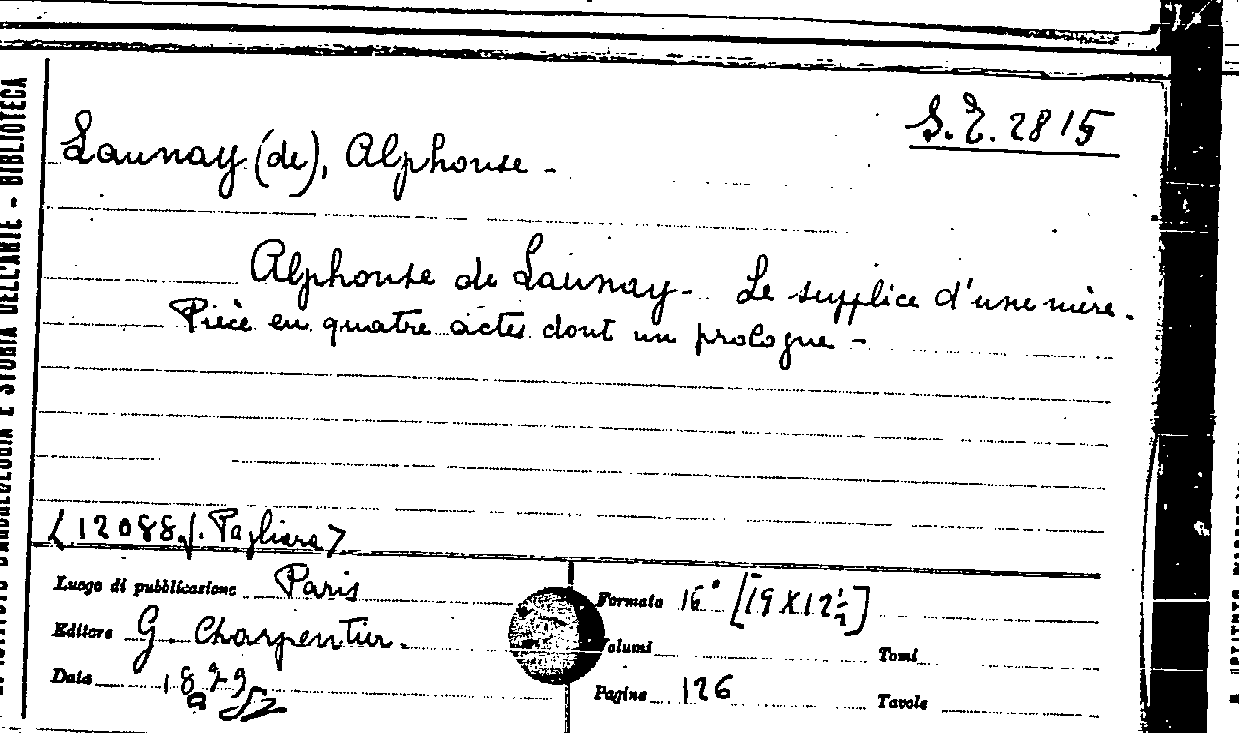 S. E. 2815
Launay (de), Alphonse -
Alphonse de Launay - Le supplice d'une mère.
Pièce en quatre actes dont un prologue -
[12088 f. Pagliara]
Luogo di pubblicazione Paris
Formato 16° [19 X 12½]
Editore G. Charpentier.
Volumi Tomi
Data
Pagine 126
Tavole
STORIA DELL'ARTE - BIBLIOTECA